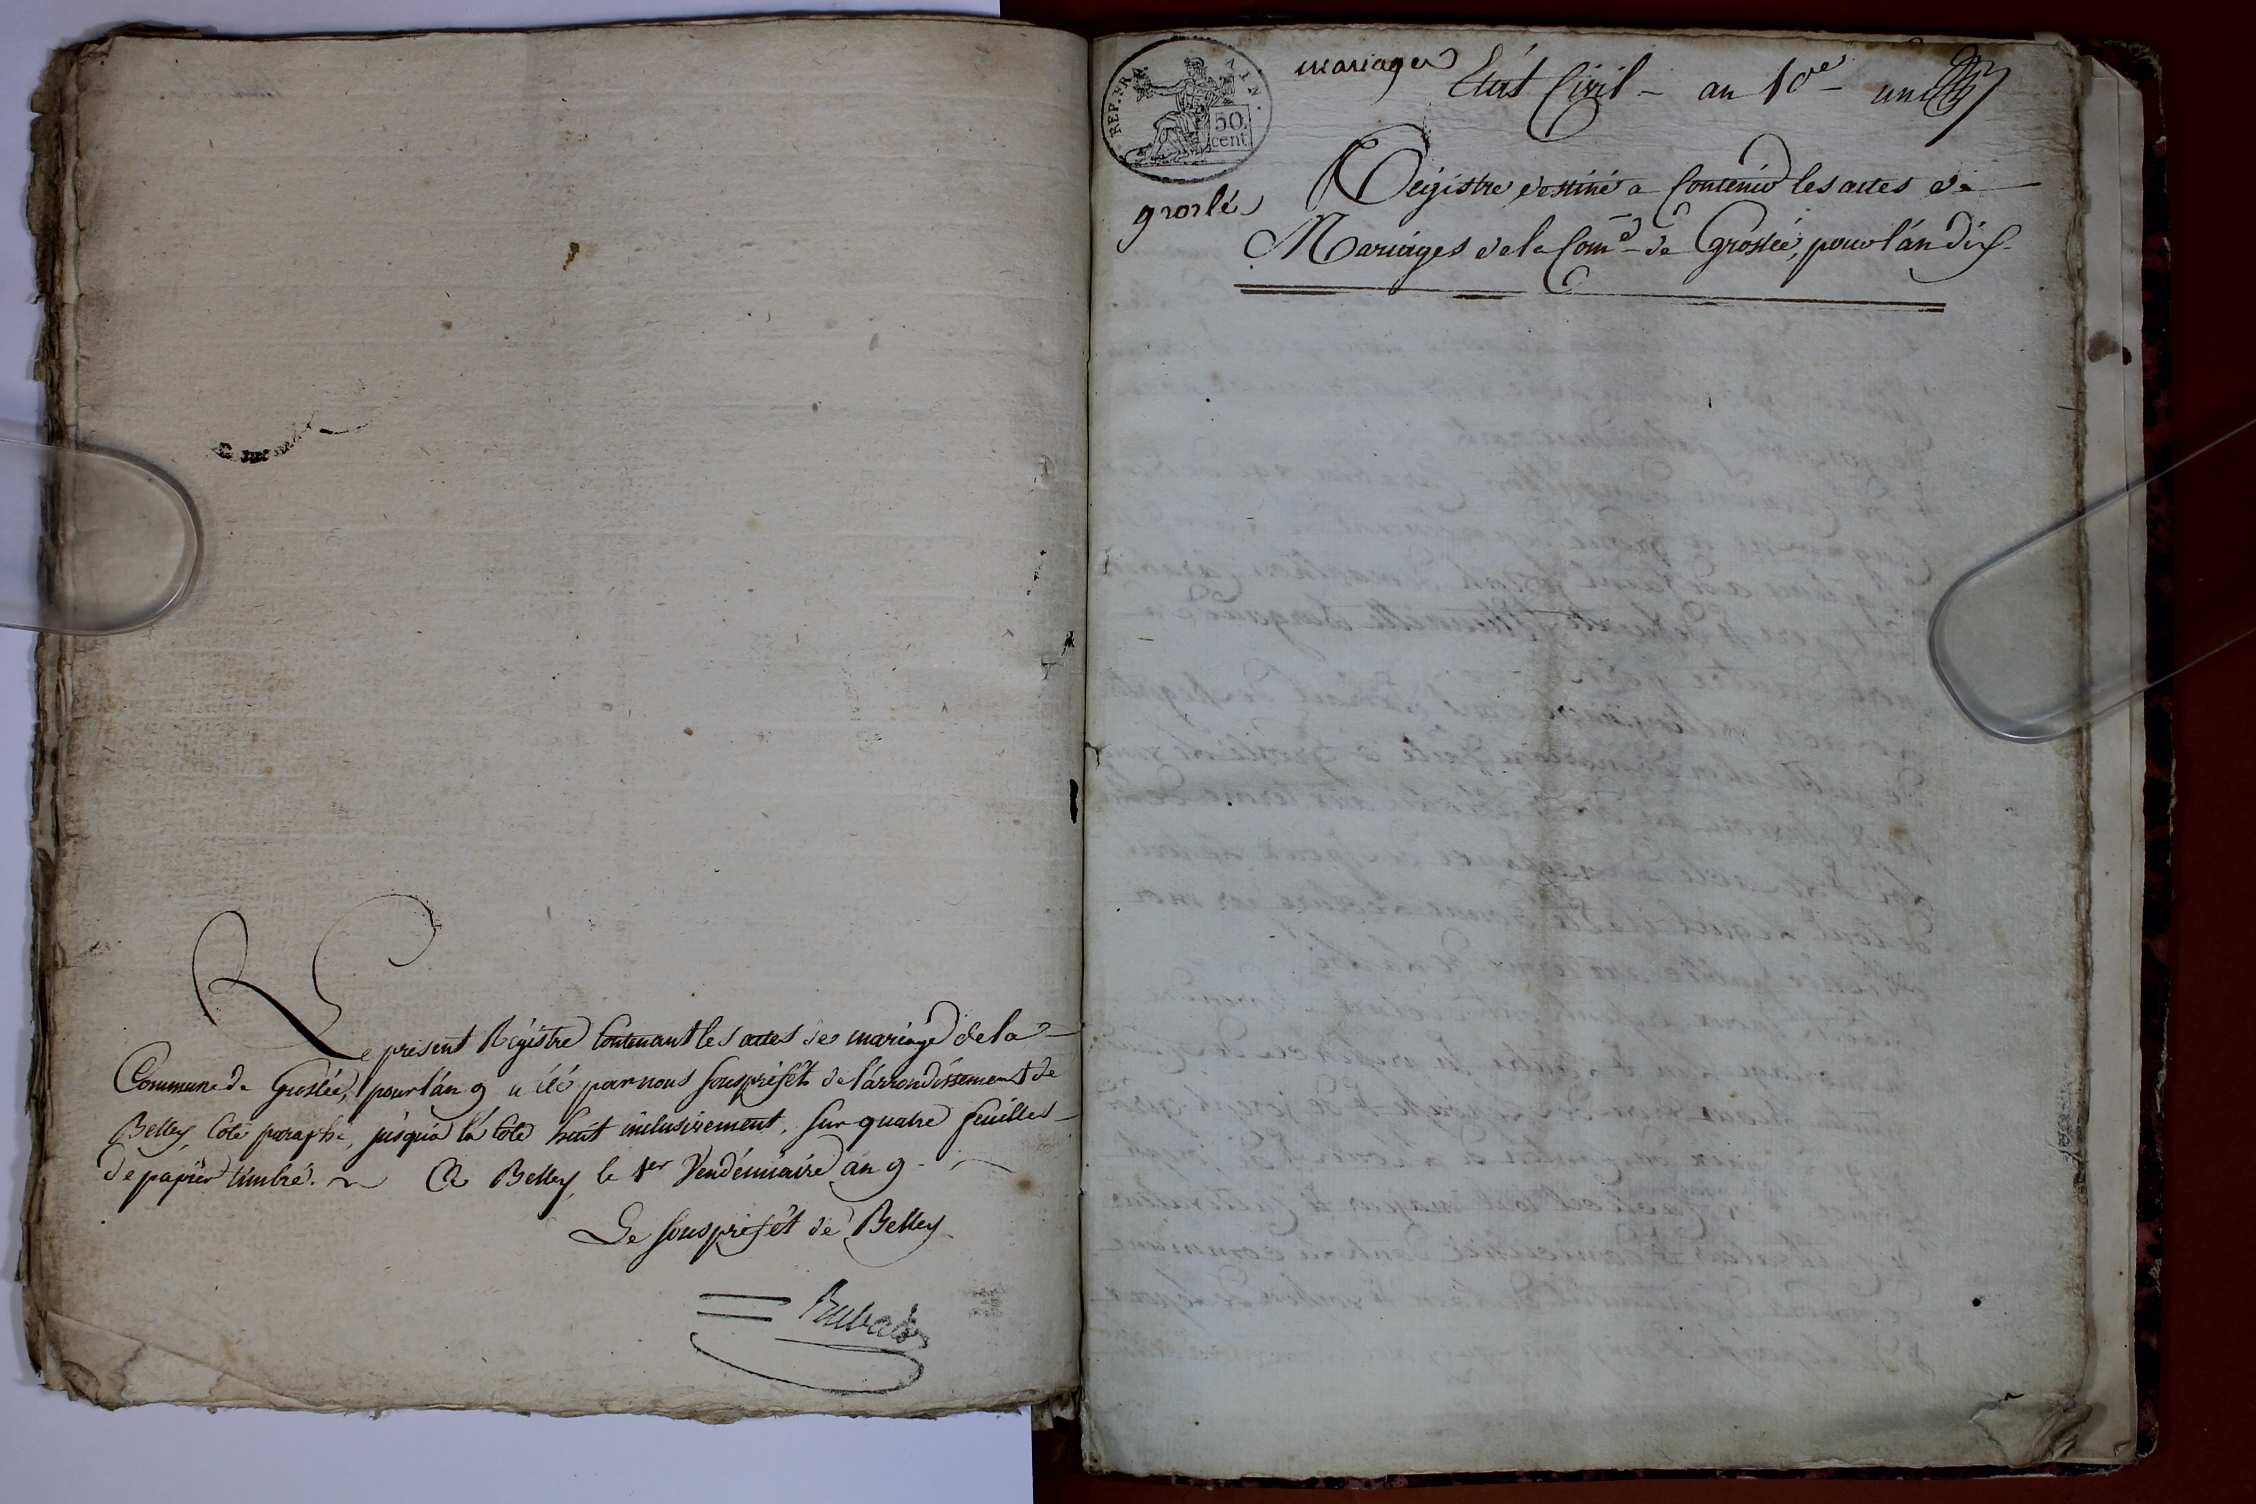 Le présent Régistre Contenant les actes de mariage de la
Commune de Groslée, pour l'án 9 a été par nous souspréfét de l'árrondissement de
Belley, Coté paraphé, jusqu'a la Cote huit inclusivement, sur quatre feuilles
de papier timbré. A Belley, le 1er Vendémiaire an 9.
Le souspréfét de Belley
REP. FRA.
50
cent.
mariages
Etat Civil - an 10e - un
groslé
Régistre destiné a Contenir les actes de
Mariages de la Come de Groslée, pour l'án dix